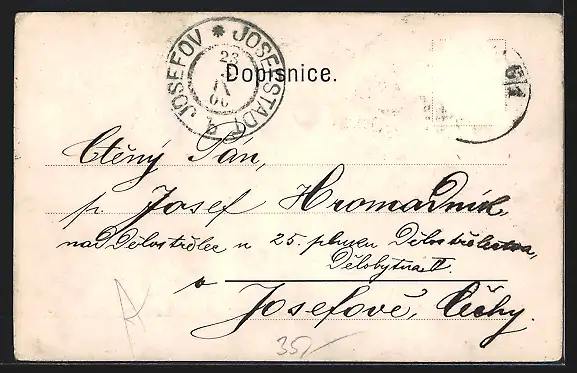 JOSEFOV * JOSEFSTADT
23
IX
00
Dopisnice.
61
Ctěný Pán,
p. Josef Hromadník
naddělostřelec u 25. pluku Dělostřelectva,
Dělobytna II.
v
Josefově, Čechy.
35/-